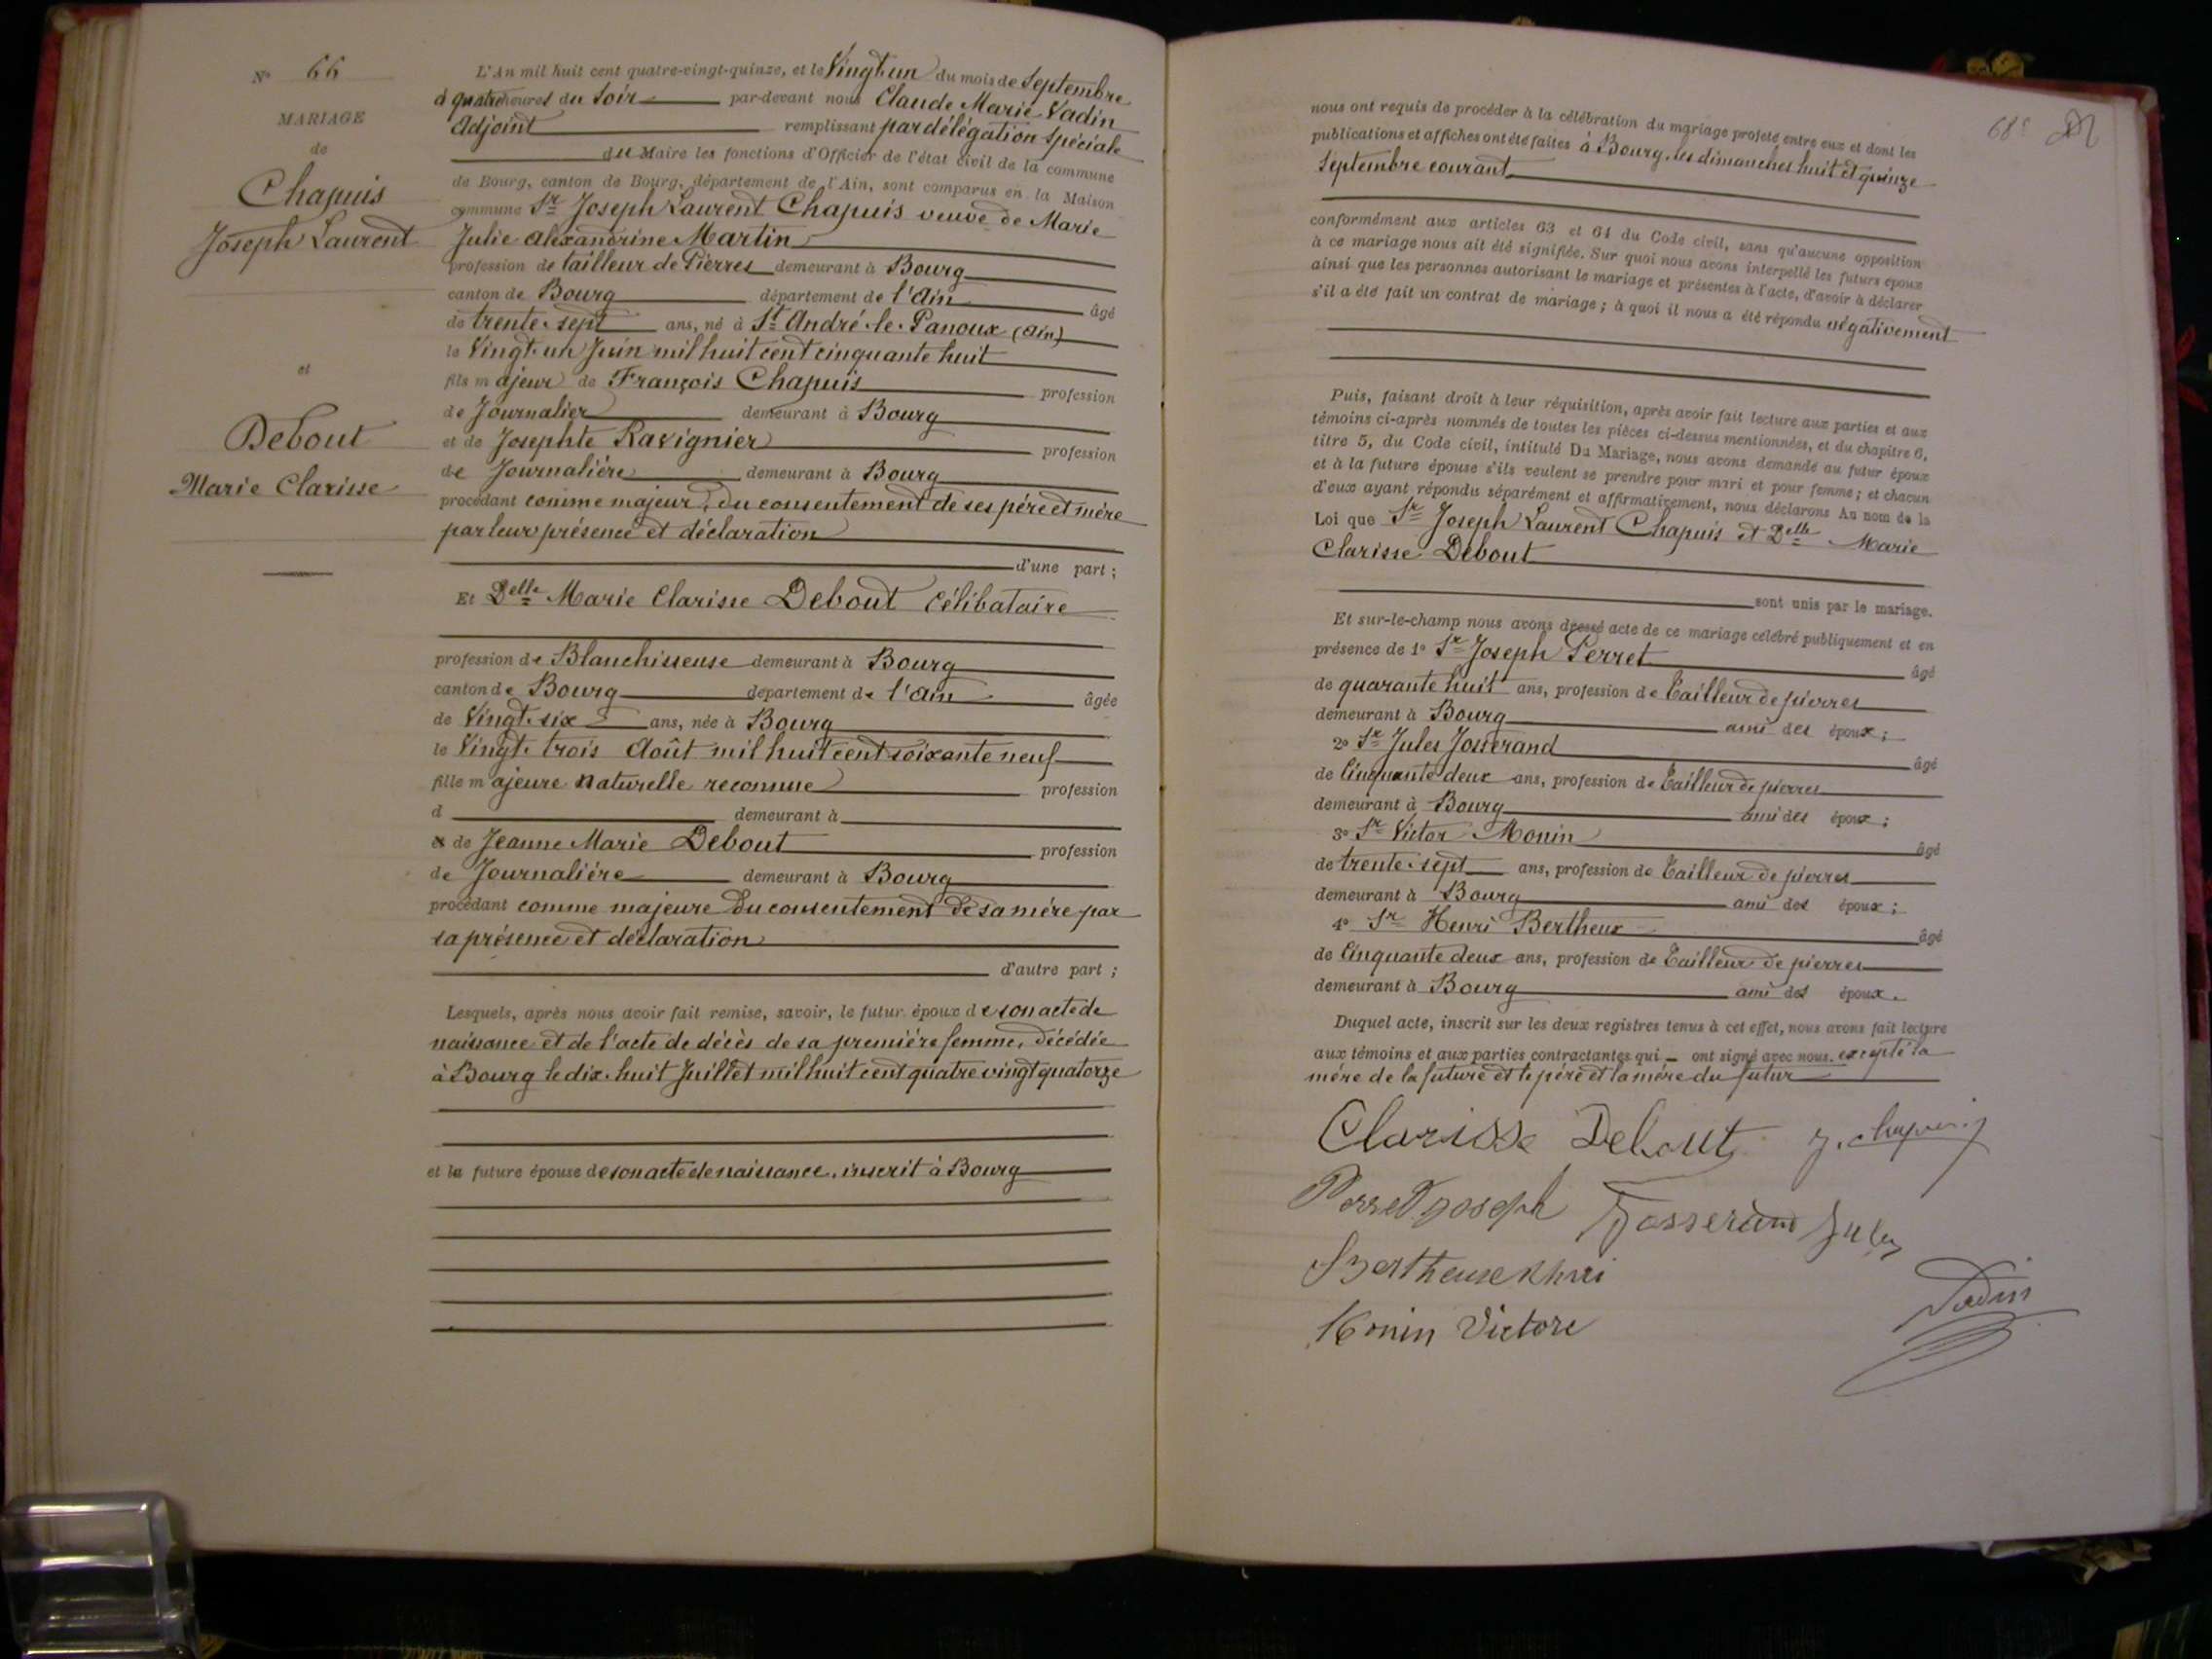 N° 66
MARIAGE
de
Chapuis
Joseph Laurent
et
Debout
Marie Clarisse
L'An mil huit cent quatre-vingt-quinze, et le Vingt-un du mois de Septembre
à quatre heures du Soir par-devant nous Claude Marie Vadin
Adjoint remplissant par délégation Spéciale
du Maire les fonctions d'Officier de l'état civil de la commune
de Bourg, canton de Bourg, département de l'Ain, sont comparus en la Maison
commune Sr Joseph Laurent Chapuis veuve de Marie
Julie Alexandrine Martin
profession de tailleur de Pierres demeurant à Bourg
canton de Bourg département de l'Ain âgé
de trente-sept ans, né à St André-le-Panoux (Ain)
le Vingt-un Juin mil huit cent cinquante huit
fils majeur de François Chapuis profession
de Journalier demeurant à Bourg
et de Josephte Ravignier profession
de Journalière demeurant à Bourg
procédant comme majeur, du consentement de ses père et mère
par leur présence et déclaration
d'une part ;
Et Delle Marie Clarisse Debout Célibataire
profession de Blanchisseuse demeurant à Bourg
canton de Bourg département de l'Ain âgée
de Vingt-six ans, née à Bourg
le Vingt-trois Août mil huit cent soixante neuf
fille majeure naturelle reconnue profession
d demeurant à
et de Jeanne Marie Debout profession
de Journalière demeurant à Bourg
procédant comme majeure du consentement de sa mère par
sa présence et déclaration
d'autre part ;
Lesquels, après nous avoir fait remise, savoir, le futur époux de son acte de
naissance et de l'acte de décès de sa première femme, décédée
à Bourg le dix-huit Juillet mil huit cent quatre vingt quatorze
et la future épouse de son acte de naissance, inscrit à Bourg
nous ont requis de procéder à la célébration du mariage projeté entre eux et dont les
publications et affiches ont été faites à Bourg, les dimanches huit et quinze
Septembre courant
conformément aux articles 63 et 64 du Code civil, sans qu'aucune opposition
à ce mariage nous ait été signifiée. Sur quoi nous avons interpellé les futurs époux
ainsi que les personnes autorisant le mariage et présentes à l'acte, d'avoir à déclarer
s'il a été fait un contrat de mariage ; à quoi il nous a été répondu négativement
Puis, faisant droit à leur réquisition, après avoir fait lecture aux parties et aux
témoins ci-après nommés de toutes les pièces ci-dessus mentionnées, et du chapitre 6,
titre 5, du Code civil, intitulé Du Mariage, nous avons demandé au futur époux
et à la future épouse s'ils veulent se prendre pour mari et pour femme ; et chacun
d'eux ayant répondu séparément et affirmativement, nous déclarons Au nom de la
Loi que Sr Joseph Laurent Chapuis et Delle Marie
Clarisse Debout
sont unis par le mariage.
Et sur-le-champ nous avons dressé acte de ce mariage célébré publiquement et en
présence de 1° Sr Joseph Perret âgé
de quarante huit ans, profession de Tailleur de pierres
demeurant à Bourg ami des époux ;
2° Sr Jules Josserand âgé
de Cinquante deux ans, profession de Tailleur de pierres
demeurant à Bourg ami des époux ;
3° Sr Victor Monin âgé
de trente-sept ans, profession de Tailleur de pierres
demeurant à Bourg ami des époux ;
4° Sr Henri Bertheux âgé
de Cinquante deux ans, profession de Tailleur de pierres
demeurant à Bourg ami des époux.
Duquel acte, inscrit sur les deux registres tenus à cet effet, nous avons fait lecture
aux témoins et aux parties contractantes qui ont signé avec nous. excepté la
mère de la future et le père et la mère du futur
Clarisse Debout J. Chapuis
Perret Joseph Josserand Jules
Vadin
Monin Victore